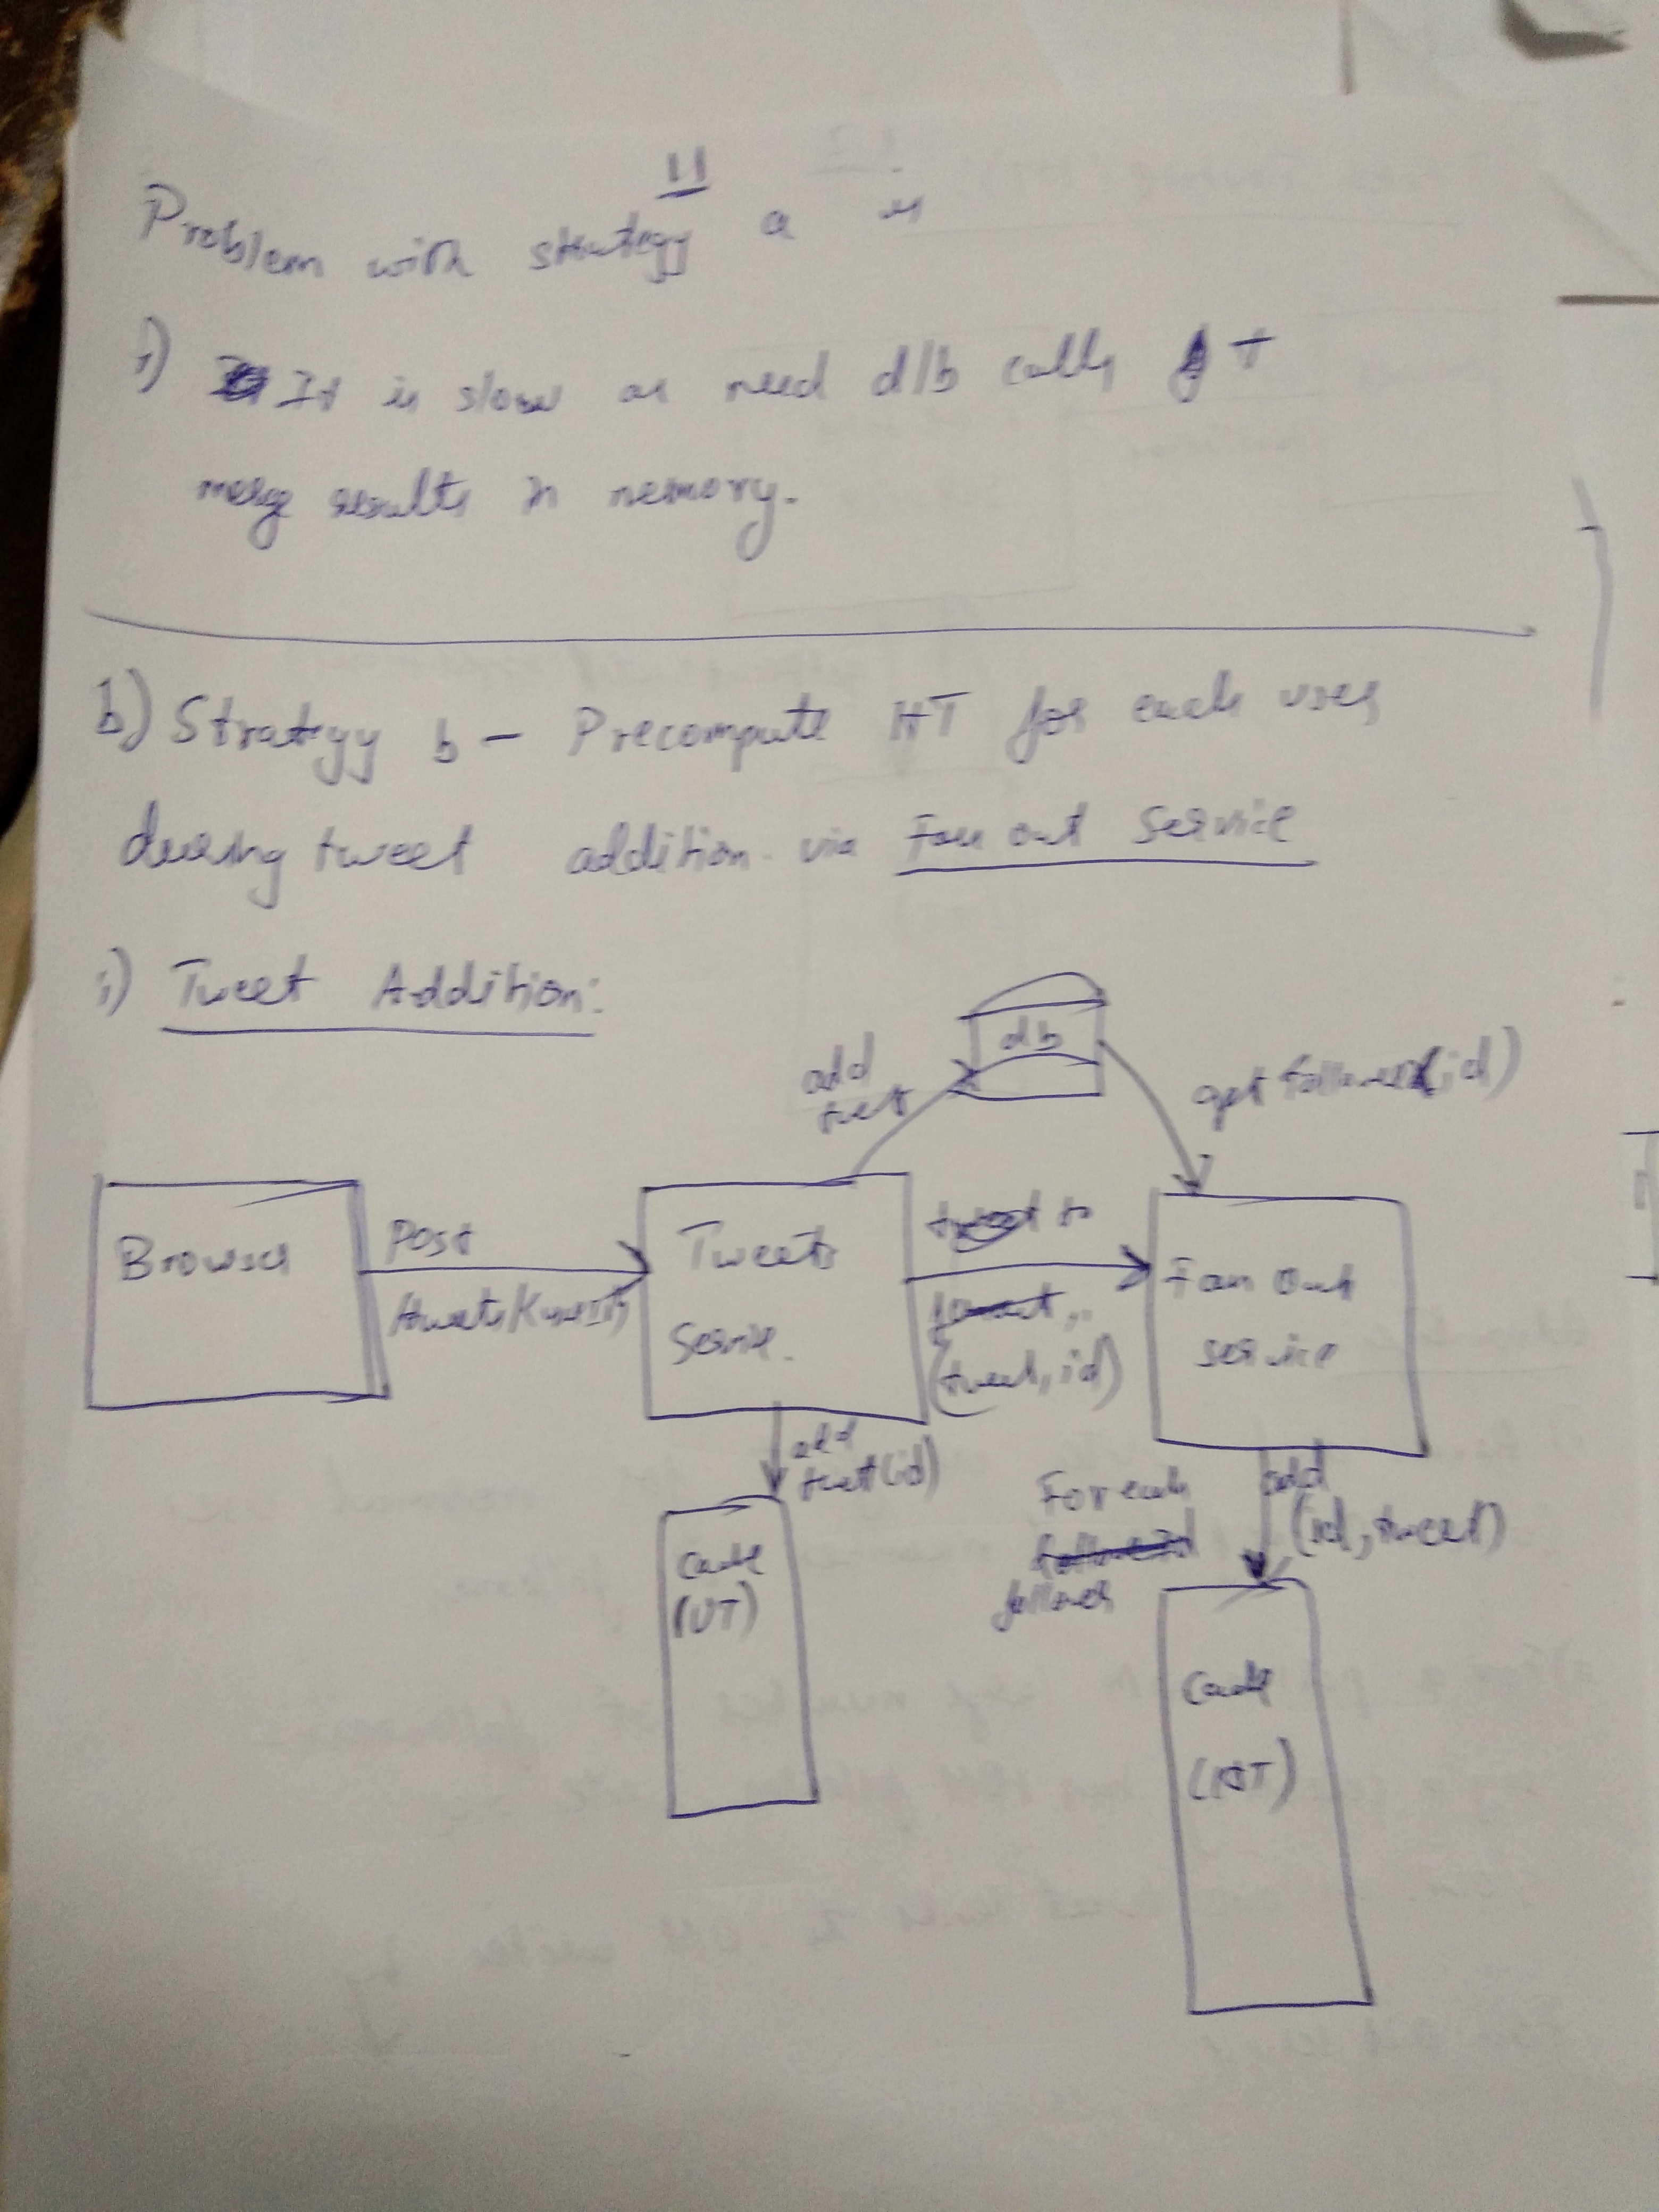 11
Problem with strategy a is
i) It is slow as need d/b calls +
merge results in memory.
b) Strategy b - Precompute HT for each user
during tweet addition via Fan out service
i) Tweet Addition:
db
add
tweet
getfollowers(id)
Browser
Post
/tweets/
Tweets
Service.
(tweet, id)
Fan Out
service
add
tweet(id)
For each
follower
add
(id, tweet)
Cache
(UT)
Cache
(HT)